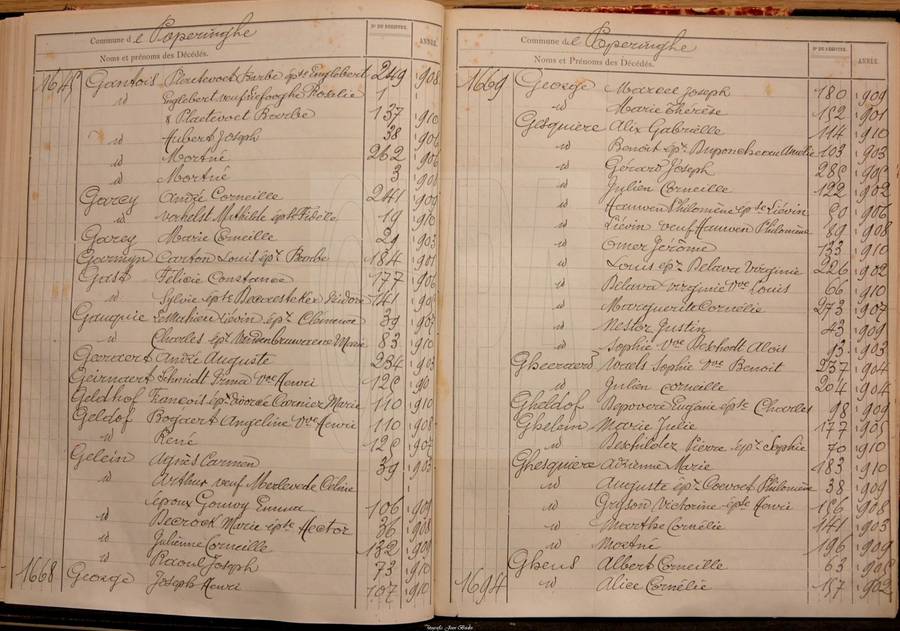 Commune de Poperinghe
N° DU REGISTRE.
ANNÉE.
Noms et prénoms des Décédés.
1645 Gantois Plaetevoet Barbe épse Englebert 249 908
id Englebert veuf Rosalie 1
& Plaetevoet Barbe 137 910
id Hubert Joseph 38 901
id Mortné 262 906
id Mortné 3 908
Garey André Corneille 241 901
id Mathilde épse Fidèle 19 910
Garey Marie Corneille 29 903
Garmyn Carton Louis épx Barbe 184 901
Gast Félicie Constance 177 906
id Sylvie épse Isidore 141
Gauquie Liévin épx Clémence 39 907
id Charles épx Marie 83 910
André Auguste 234 903
Geirnaert Schmidt Irma Vve Henri 120 90
Geldhof François épx divorcé Carnier Marie 110 910
Geldof Bogaert Angeline Vve Henri 110 908
id René 125 907
Gelein Agnès Carmen 39 903
id Arthur veuf Merlevede Céline
époux Gouwy Emma 106 901
id Becrock Marie épse Hector 36 908
id Julienne Corneille 132 909
id Raoul Joseph 73 910
1668 George Joseph Henri 107 910
Commune de Poperinghe
N° DU REGISTRE.
ANNÉE.
Noms et Prénoms des Décédés.
1669 George Marcel Joseph 180 909
id Marie Thérèse 152 901
Gesquiere Alix Gabrielle 114 910
id Benoit épx Amélie 103 903
id Gérard Joseph 285
id Julien Corneille 122 902
id Hauwen Philomène épse Liévin 50 906
id Liévin veuf Hauwen Philomène 89 908
id Omer Jérôme 133 910
id Louis épx Delava Virginie 226 902
id Delava Virginie Vve Louis 66 910
id Marguerite Cornélie 273 907
id Nestor Justin 43 909
id Sophie Vve Deschodt Alois 93 903
Gheeraerd Waels Sophie Vve Benoit 237 904
id Julien Corneille 204 904
Gheldof Depovere Eugénie épse Charles 98 909
Ghelein Marie Julie 177 905
id Deschilder Pierre épx Sophie 70 910
Ghesquiere Adrienne Marie 183 910
id Auguste épx Coevoet Philomène 38 909
id Gryson Victorine épse Henri 156 908
id Marthe Cornélie 141 903
id Mortné 196 909
Gheus Albert Corneille 63 905
1694 id Alice Cornélie 157 902